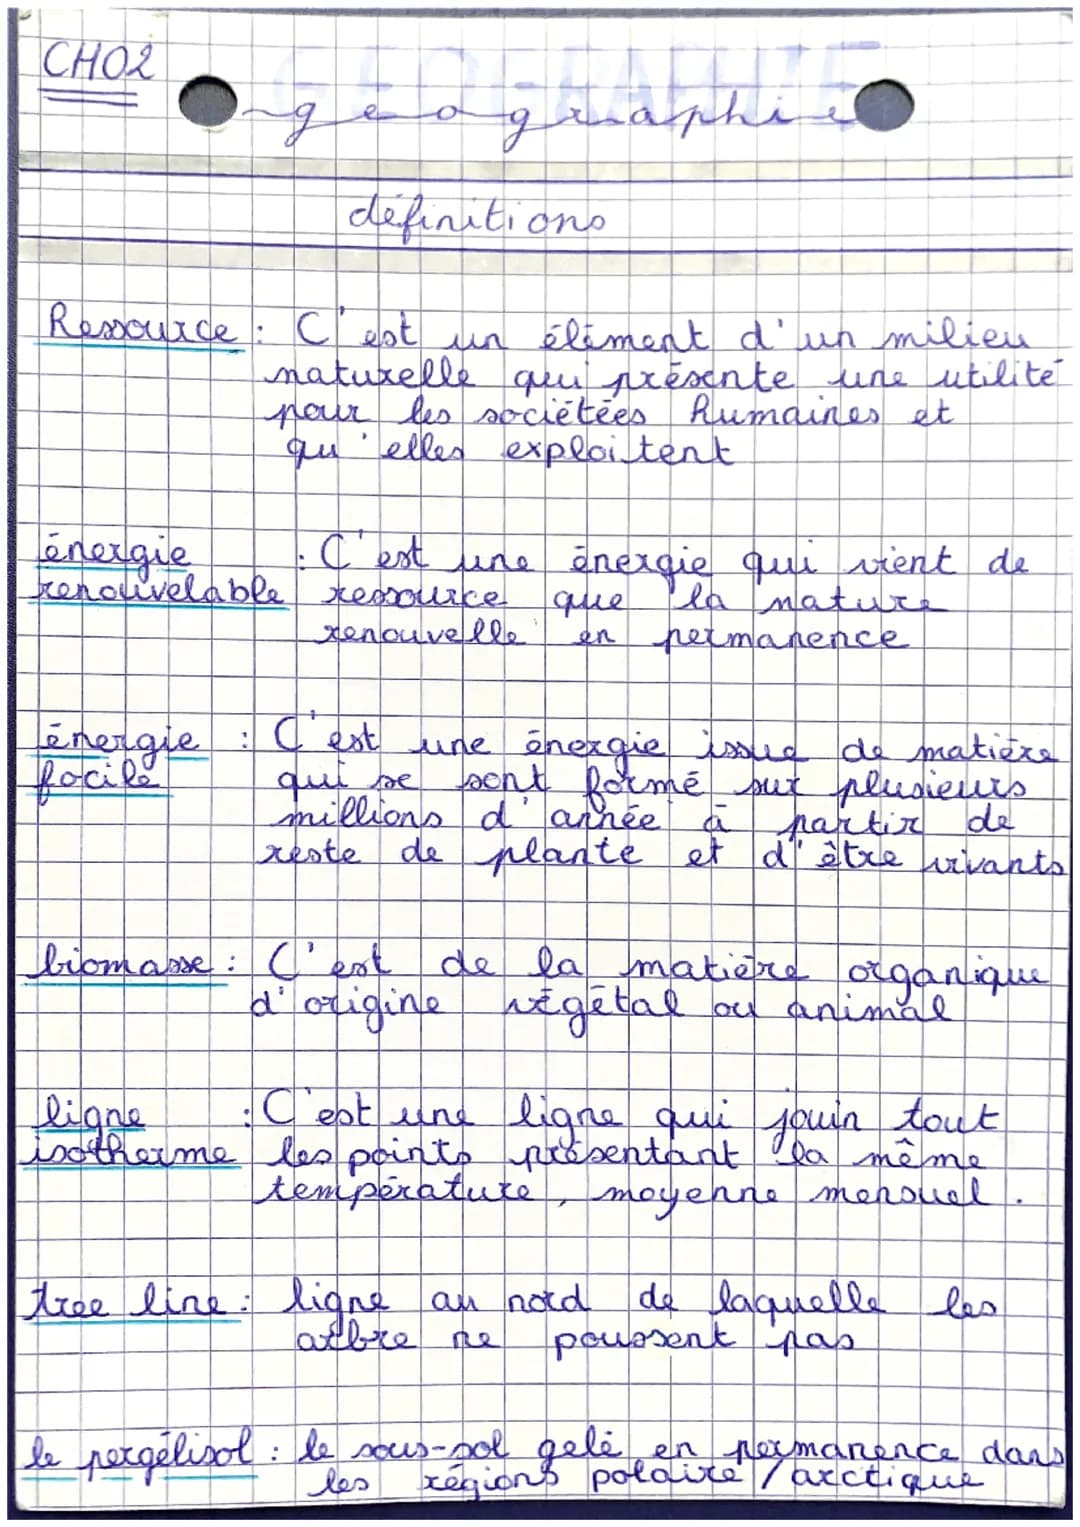 CH02
géographie
définitions
Ressource : C'est un élément d'un milieu
naturelle qui présente une utilité
pour les sociétées humaines et
qu'elles exploitent
énergie : C'est une énergie qui vient de
renouvelable ressource que la nature
renouvelle en permanence
énergie : C'est une énergie issue de matière
focile qui se sont formé sur plusieurs
millions d'année à partir de
reste de plante et d'être vivants
biomasse : C'est de la matière organique
d'origine végétal ou animal
ligne : C'est une ligne qui jouin tout
isotherme les points présentant la même
température, moyenne mensuel.
tree line : ligne au nord de laquelle les
arbre ne poussent pas
le pergélisol : le sous-sol gelé en permanence dans
les régions polaire / arctique